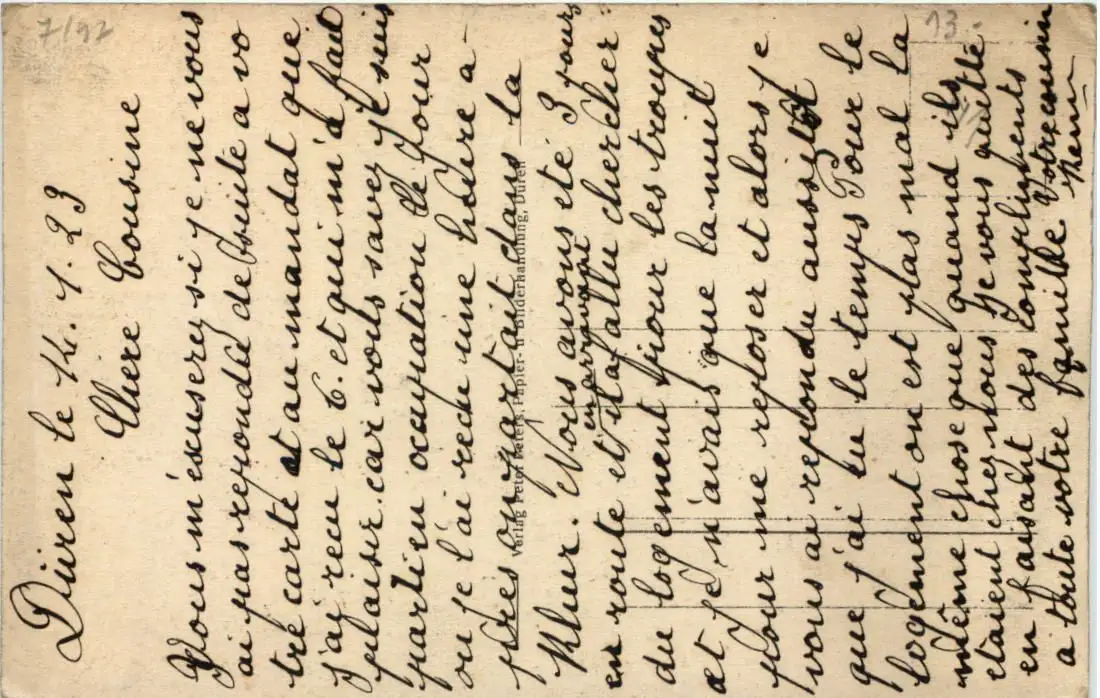 7/92
13.-
Düren le 14.1.23
Chère Cousine
Vous m'éxuserez si je ne vous
ai pas repondu de suite a vo
tre carte et au mandat que
j'ai recu le 6. et qui m'a fait
plaisir. car vous savez je suis
partie en occupation le jour
ou je l'ai recu une heure a-
pres on partait dans la
Rhur. Nous avons eté 3 jours
en route et en arrivant il a fallu chercher
du logement pour les troupes
et je n'avais que la nuit
pour me reposer et alors je
vous ai repondu aussitôt
que j'ai eu le temps Pour le
logement on est pas mal la
même chose que quand ils
etaient chez nous Je vous quitte
en faisant des compliments
a toute votre famille Votre cousin
Verlag Peter Peters, Papier- u Bilderhandlung, Düren